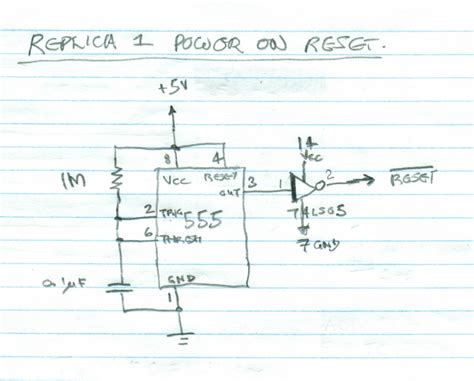 REPLICA 1 POWER ON RESET.
+5V
8 4 14
Vcc RESET Vcc
1M OUT 3 1 2 RESET
2 TRIG 555 74LS05
6 THRESH 7 GND
0.1µF GND
1